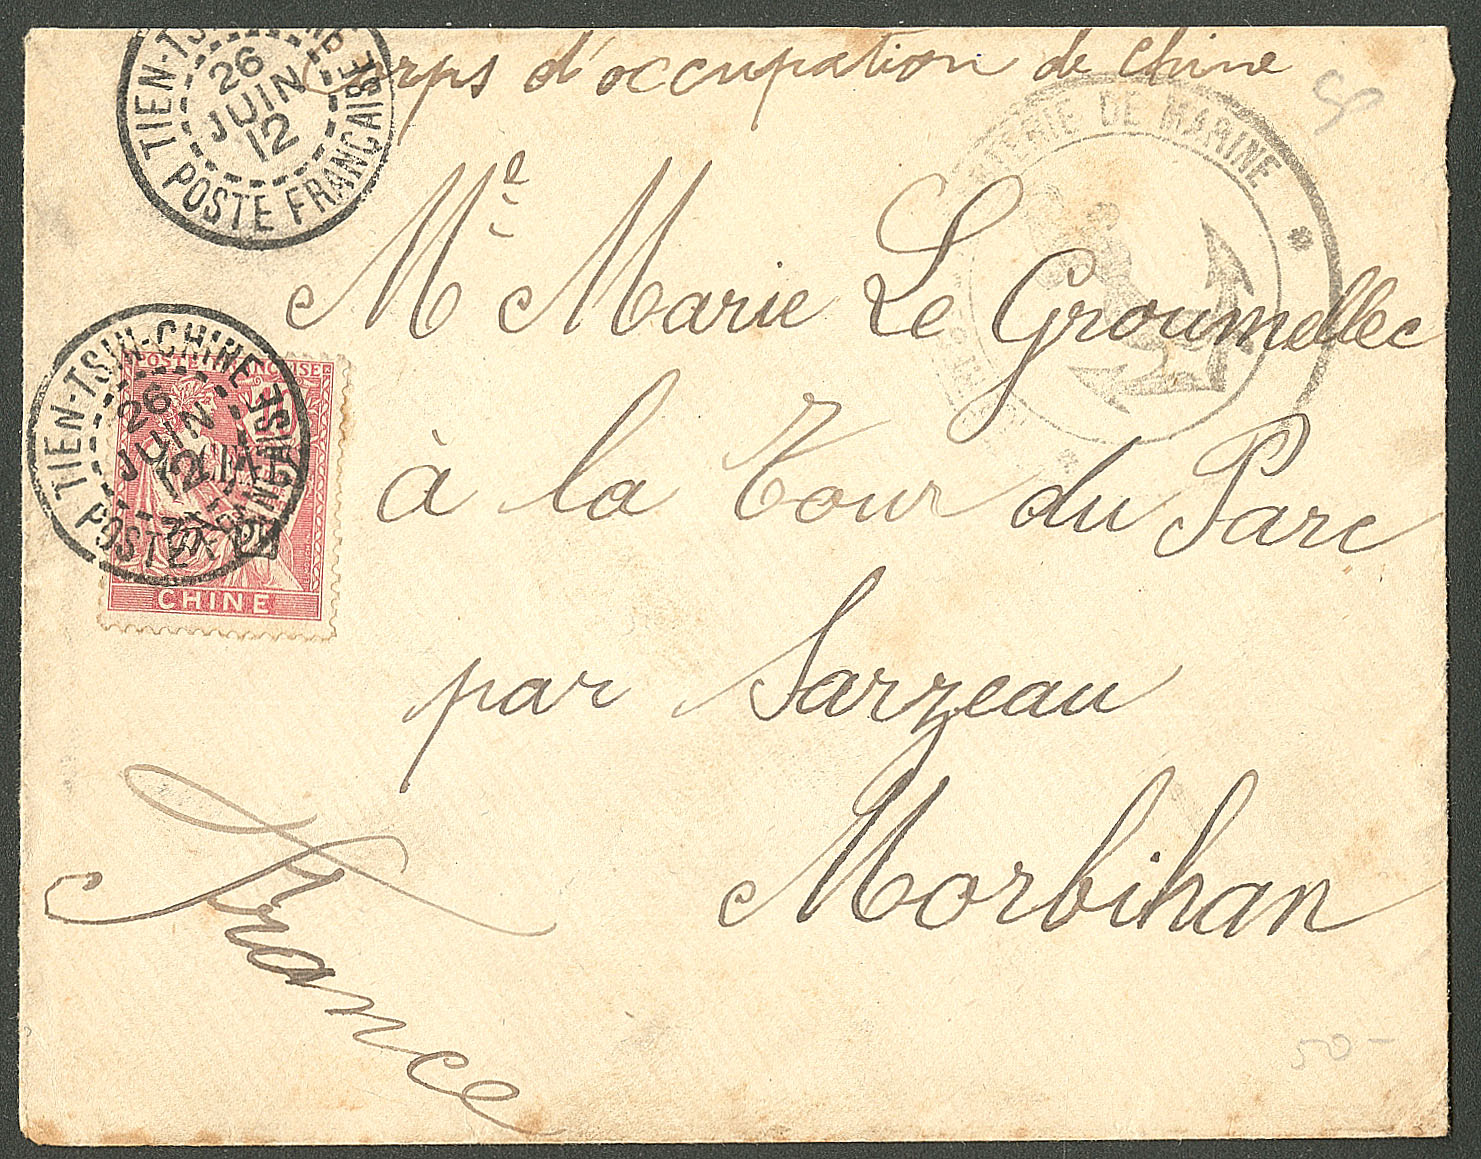 Corps d'occupation de chine
TIEN-TSIN-CHINE
26
JUIN
12
POSTE FRANÇAISE
TERIE DE MARINE
Me Marie Le Groumellec
à la Tour du Parc
par Sarzeau
Morbihan
France
TIEN-TSIN-CHINE
26
JUIN
12
POSTE FRANÇAISE
POSTE FRANÇAISE
CHINE
50-